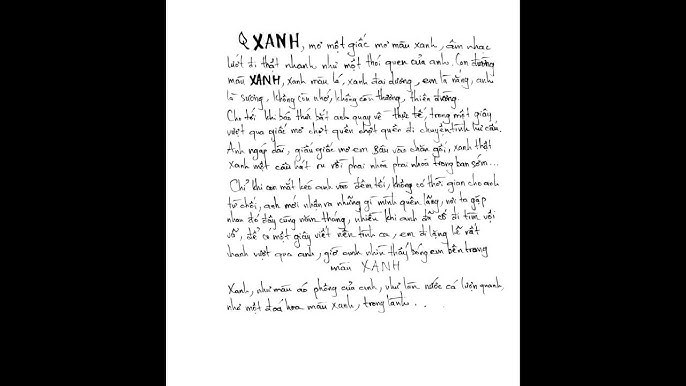 XANH, mơ một giấc mơ màu xanh, âm nhạc
lướt đi thật nhanh như một thói quen của anh. Con đường
màu XANH, xanh màu lá, xanh đại dương, em là nắng, anh
là sương, không còn nhớ, không còn thương, thiên đường.
Cho tới khi báo thức bắt anh quay về thực tế, trong một giây
vượt qua giấc mơ chợt quên chợt quên đi chuyện tình lúc đầu.
Anh ngáp dài, giấu giấc mơ em sâu vào chăn gối, xanh thật
xanh một câu hát ru rồi phai nhòa phai nhòa trong ban sớm...
Chỉ khi con mắt kéo anh vào đêm tối, không có thời gian cho anh
từ chối, anh mới nhận ra những gì mình quên lãng, nơi ta gặp
nhau đó đầy cũng năm tháng, nhiều khi anh đã cố đi tìm vội
vã, để có một giây viết nên tình ca, em đi lặng lẽ rất
nhanh vượt qua anh, giờ anh nhìn thấy bóng em bên trong
màu XANH
Xanh, như màu áo phông của anh, như làn nước cá lượn quanh,
như một đoá hoa màu xanh, trong lành...